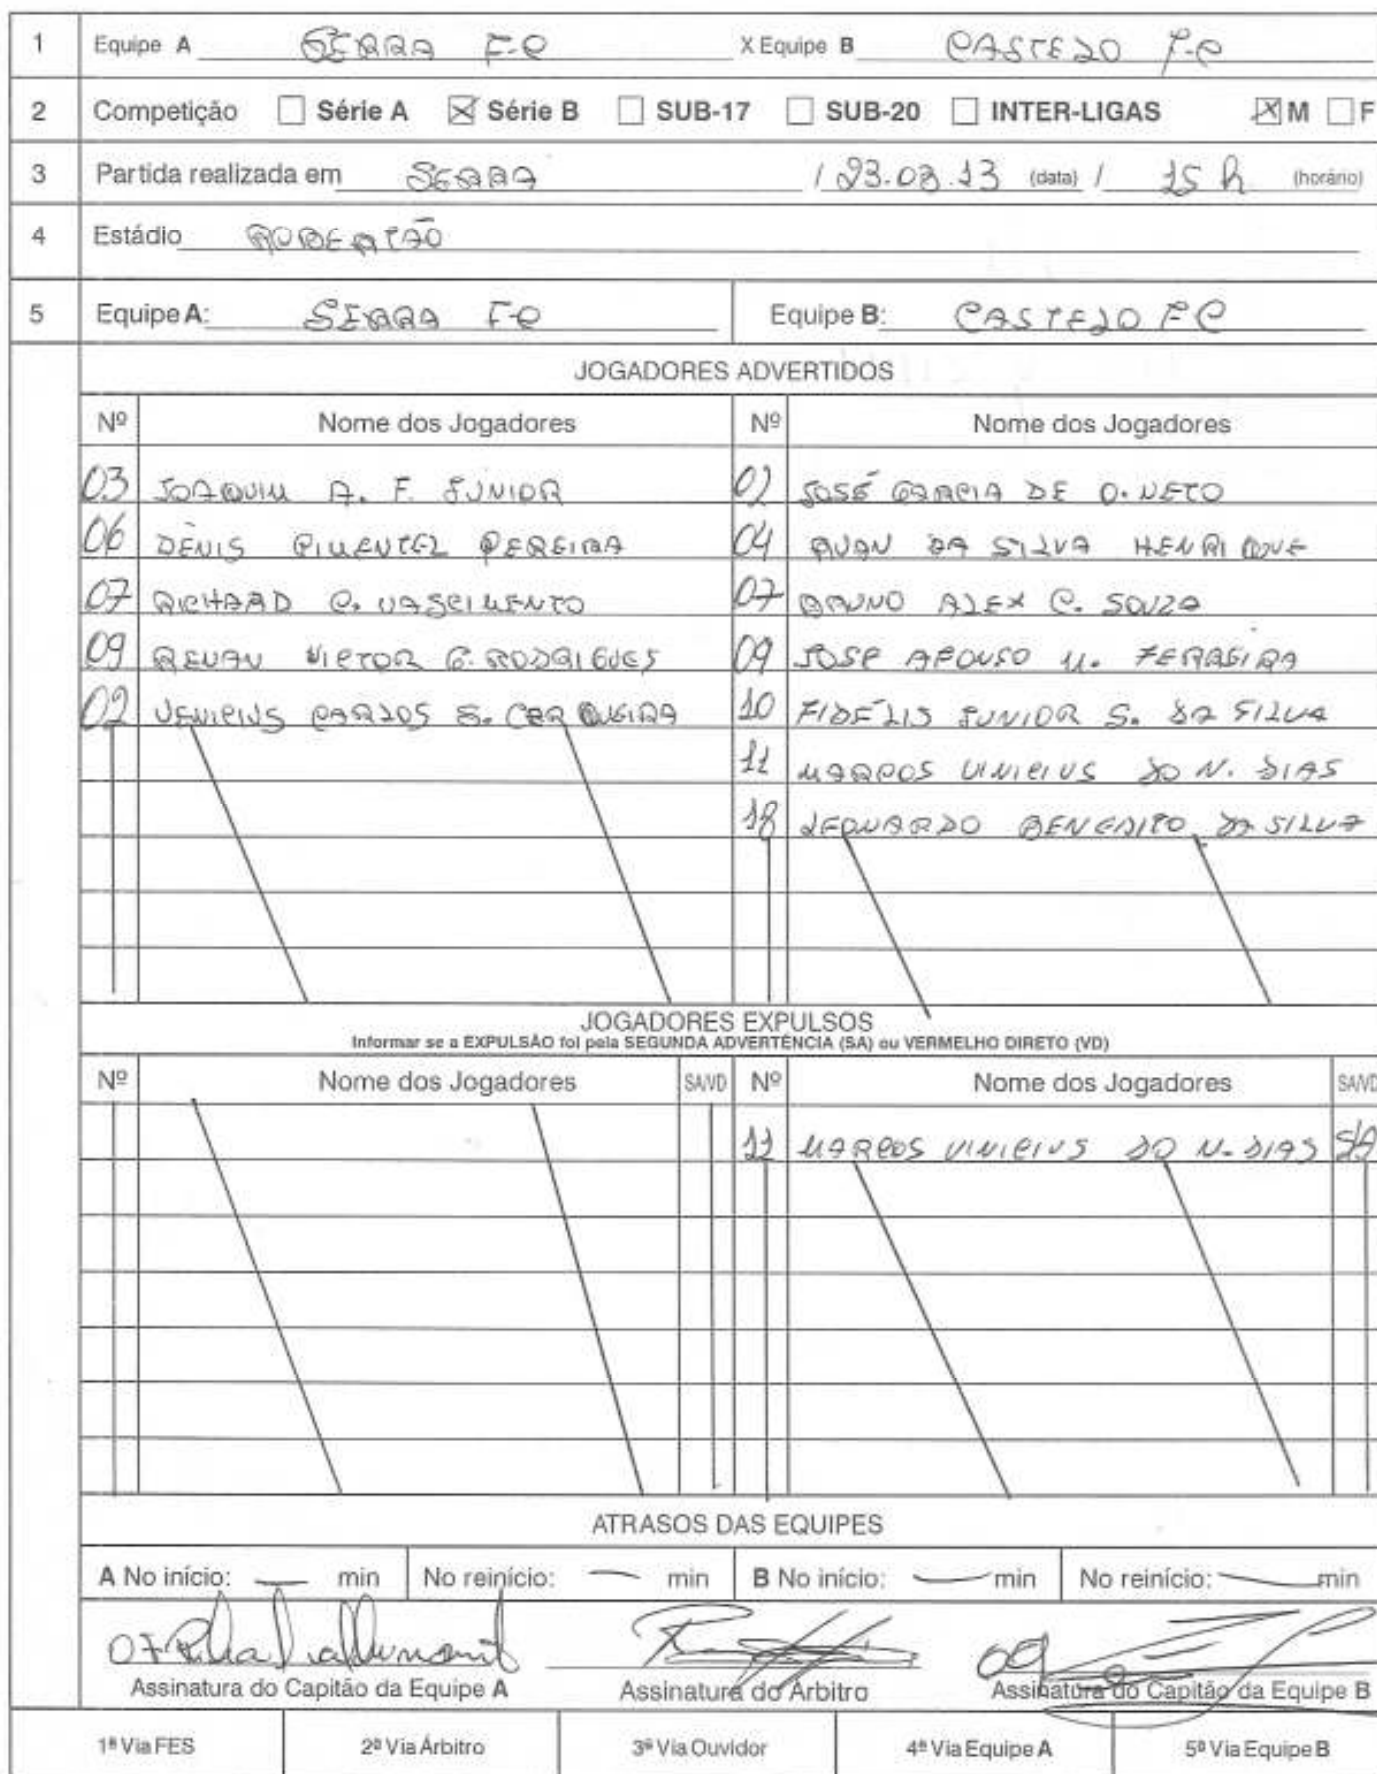 1 Equipe A SERRA F-C X Equipe B CASTELO F-C
2 Competição Série A Série B SUB-17 SUB-20 INTER-LIGAS M F
3 Partida realizada em SERRA / 23.03.13 (data) / 15 h (horário)
4 Estádio ROBERTÃO
5 Equipe A: SERRA F-C Equipe B: CASTELO FC
JOGADORES ADVERTIDOS
Nº Nome dos Jogadores Nº Nome dos Jogadores
03 JOAQUIM A. F. JÚNIOR 02 JOSÉ GARCIA DE O. NETO
06 DENIS PIMENTEL PEREIRA 04 RUAN DA SILVA HENRIQUE
07 RICHARD C. NASCIMENTO 07 BRUNO ALEX C. SOUZA
09 RENAN VICTOR G. RODRIGUES 09 JOSE AFONSO M. FERREIRA
02 VENICIUS CARLOS S. CERQUEIRA 10 FIDÉLIS JUNIOR S. DA SILVA
11 MARCOS VINICIUS DO N. DIAS
18 LEONARDO BENEDITO DA SILVA
JOGADORES EXPULSOS
Informar se a EXPULSÃO foi pela SEGUNDA ADVERTÊNCIA (SA) ou VERMELHO DIRETO (VD)
Nº Nome dos Jogadores SA/VD Nº Nome dos Jogadores SA/VD
11 MARCOS VINICIUS DO N. DIAS SA
ATRASOS DAS EQUIPES
A No início: min No reinício: min B No início: min No reinício: min
07 09
Assinatura do Capitão da Equipe A Assinatura do Árbitro Assinatura do Capitão da Equipe B
1ª Via FES 2ª Via Árbitro 3ª Via Ouvidor 4ª Via Equipe A 5ª Via Equipe B